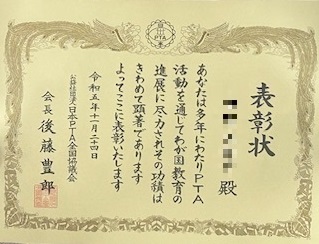 PTA
表彰状
殿
あなたは多年にわたりPTA
活動を通じてわが国教育の
進展に尽力されその功績は
きわめて顕著であります
よってここに表彰いたします
令和五年十一月二十四日
公益社団法人日本PTA全国協議会
会長 後藤豊郎